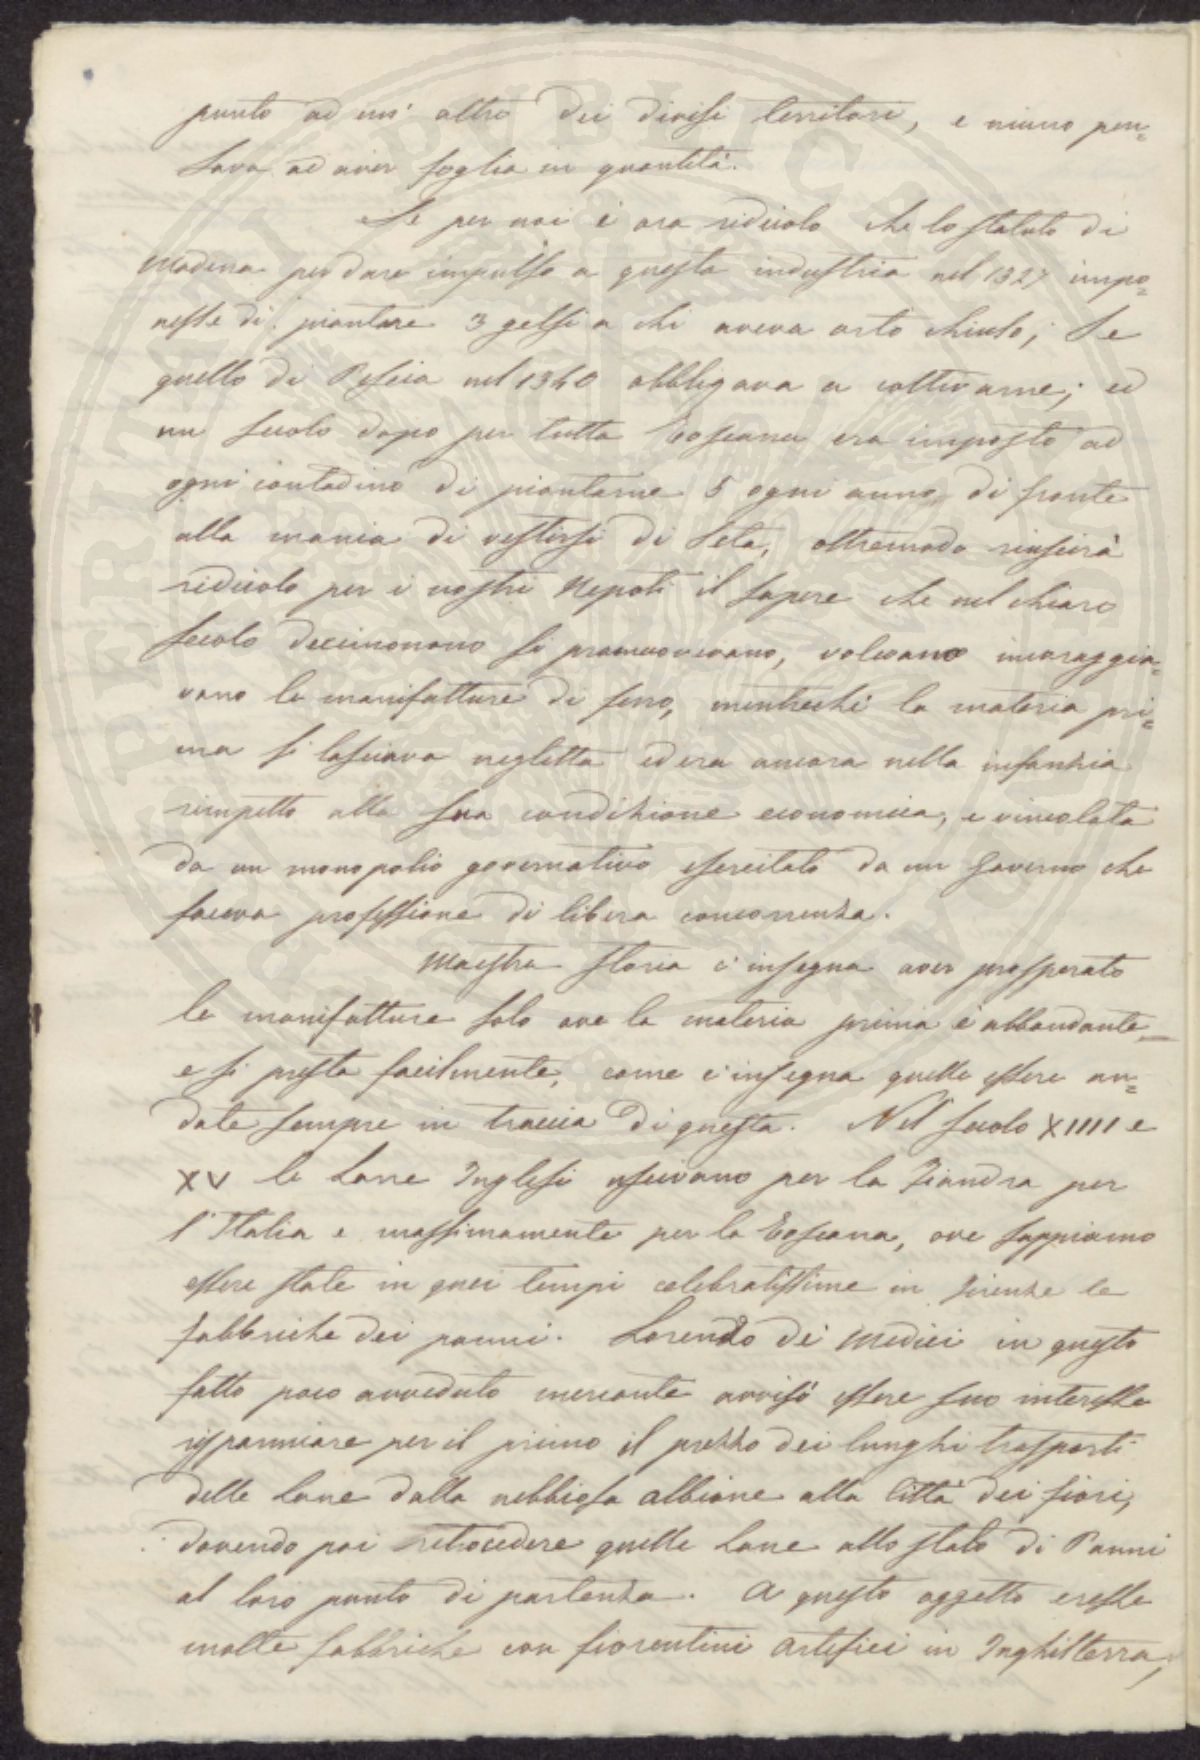 punto ad un' altro dei divisi territori, e niuno pen=
sava ad aver foglia in quantità.
Se per noi è ora ridicolo che lo statuto di
Modena per dare impulso a questa industria nel 1327 impo=
nesse di piantare 3 gelsi a chi aveva orto chiuso; se
quello di Pescia nel 1340 obbligava a coltivarne; ed
un secolo dopo per tutta Toscana era imposto ad
ogni contadino di piantarne 5 ogni anno, di fronte
alla mania di vestirsi di seta, oltremodo riuscirà
ridicolo per i nostri Nepoti il sapere che nel chiaro
secolo decimonono si promuovevano, volevano incoraggia=
vano le manifatture di ferro, mentrechè la materia pri=
ma si lasciava negletta ed era ancora nella infanzia
rimpetto alla sua condizione economica, e vincolata
da un monopolio governativo esercitato da un Governo che
faceva professione di libera concorrenza.
Maestra storia c'insegna aver prosperato
le manifatture solo ove la materia prima è abbondante
e si presta facilmente, come c'insegna quelle essere an=
date sempre in traccia di questa. Nel secolo XIIII e
XV le Lane Inglesi uscivano per la Fiandra per
l'Italia e massimamente per la Toscana, ove sappiamo
essere state in quei tempi celebratissime in Firenze le
fabbriche dei panni. Lorenzo de' Medici in questo
fatto poco avveduto mercante avvisò essere suo interesse
risparmiare per il primo il prezzo dei lunghi trasporti
delle Lane dalla nebbiosa Albione alla Città dei fiori,
dovendo poi retrocedere quelle Lane allo stato di Panni
al loro punto di partenza. A questo oggetto eresse
molte fabbriche con fiorentini artefici in Inghilterra,
PERITANI PVBLICAE